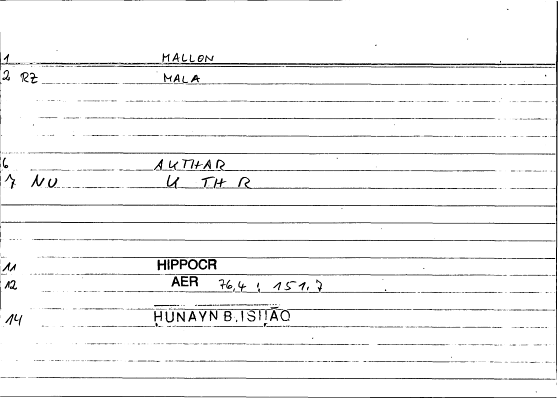 1 MALLON
2 RZ MALA
6 AUTHAR
7 NU U TH R
11 HIPPOCR
12 AER 76,4 : 151,7
14 ḤUNAYN B. ISḤĀQ